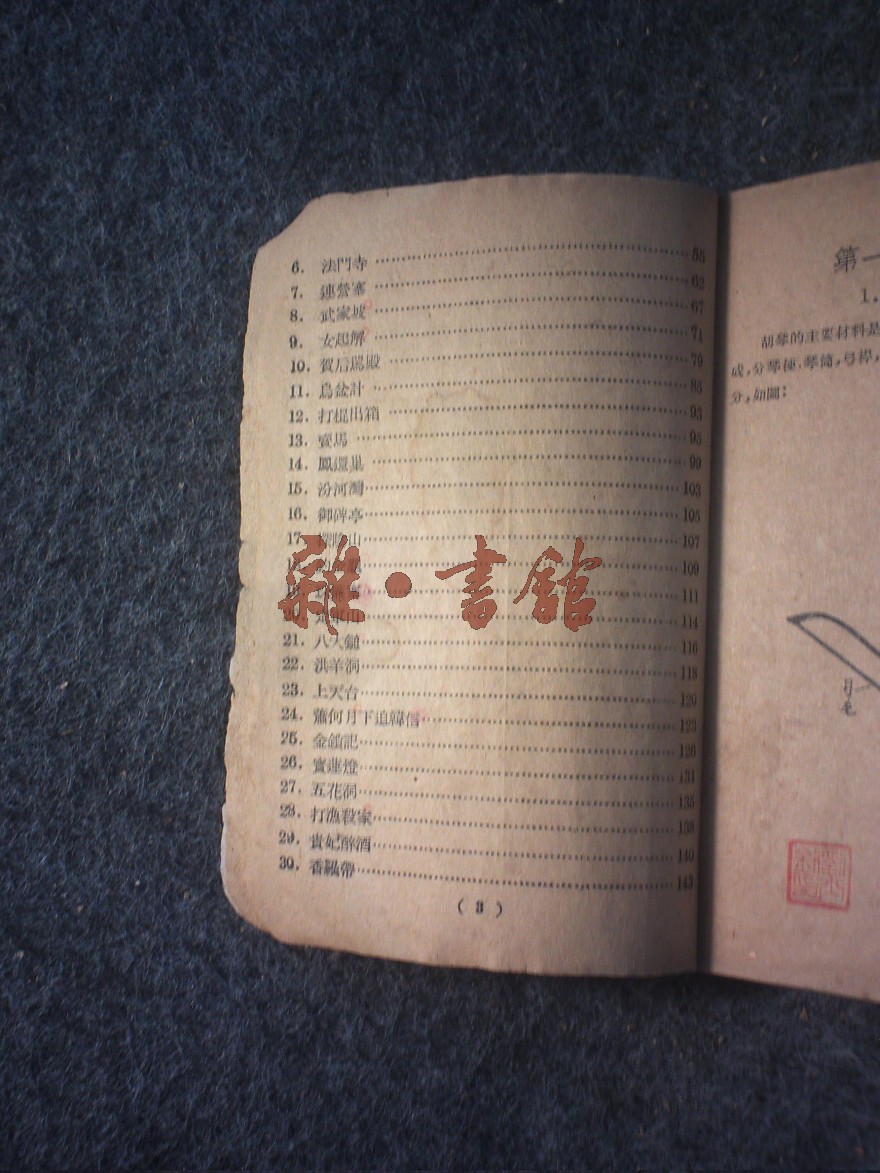 6. 法門寺 55
7. 連營寨 62
8. 武家坡 67
9. 女起解 71
10. 賀后罵殿 79
11. 烏盆計 85
12. 打棍出箱 93
13. 賣馬 95
14. 鳳還巢 99
15. 汾河灣 103
16. 御碑亭 105
17. 山 107
109
111
114
21. 八大鎚 116
22. 洪羊洞 118
23. 上天台 120
24. 蕭何月下追韓信 123
25. 金鎖記 126
26. 寶蓮燈 131
27. 五花洞 135
28. 打漁殺家 138
29. 貴妃醉酒 140
30. 香羅帶 143
( 3 )
雜·書館
第一
1.
胡琴的主要材料是
成,分琴桿、琴筒,弓桿,
分,如圖:
弓毛